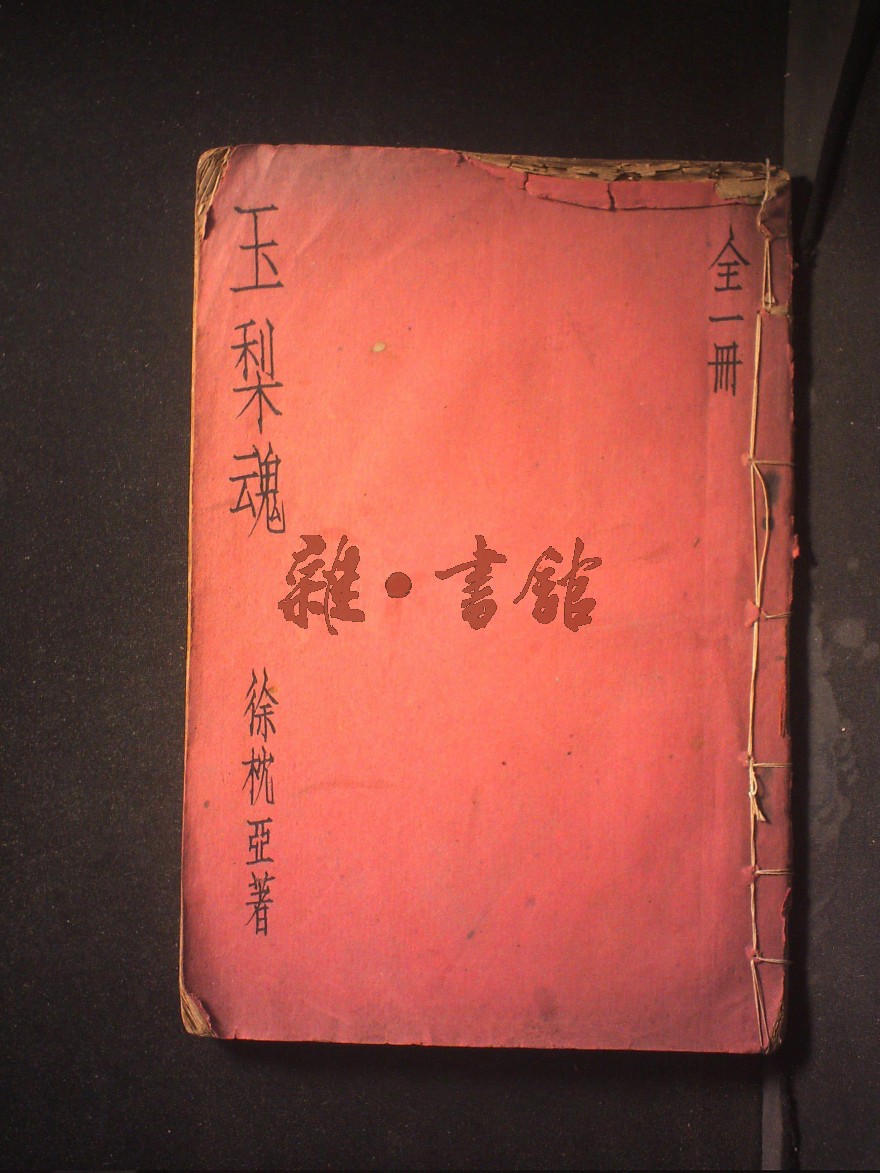 全一冊
玉梨魂
徐枕亞著
雜·書館